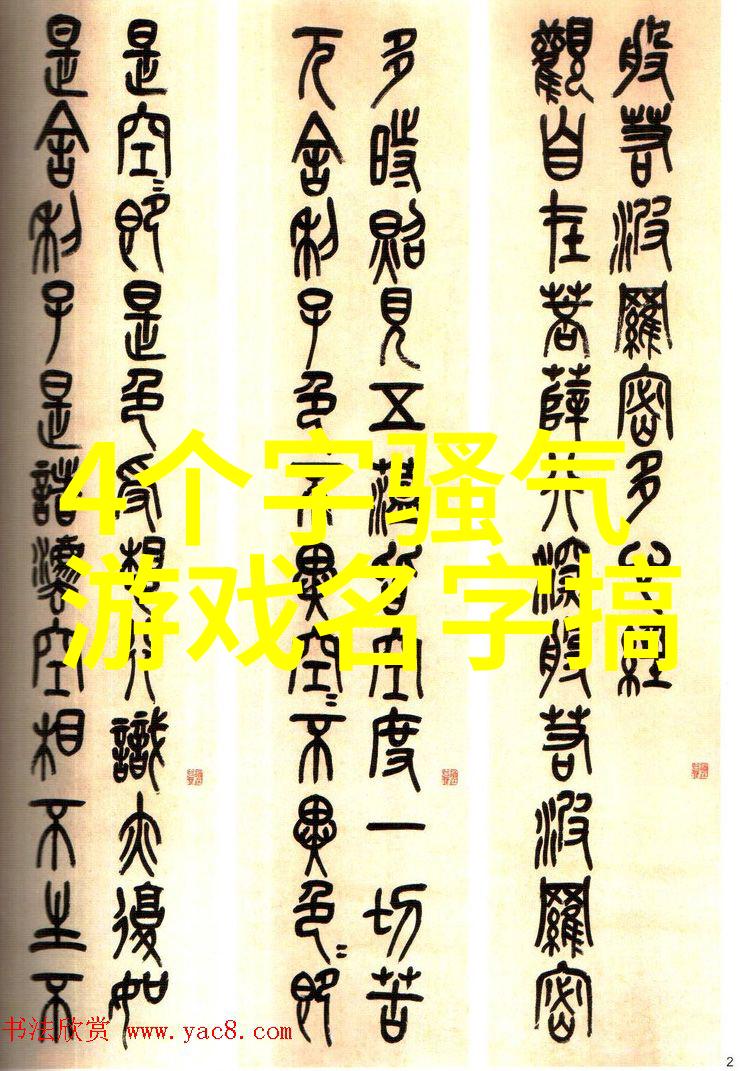 般若波羅密多心經
觀自在菩薩行深般若波羅密
多時照見五蘊皆空度一切苦
厄舍利子色不異空〻不異色〻即
是空〻即是色受想行識亦復如
是舍利子是諸灋空相不生不
4个字骚气
游戏名字搞
书法欣赏 www.yac8.com
2